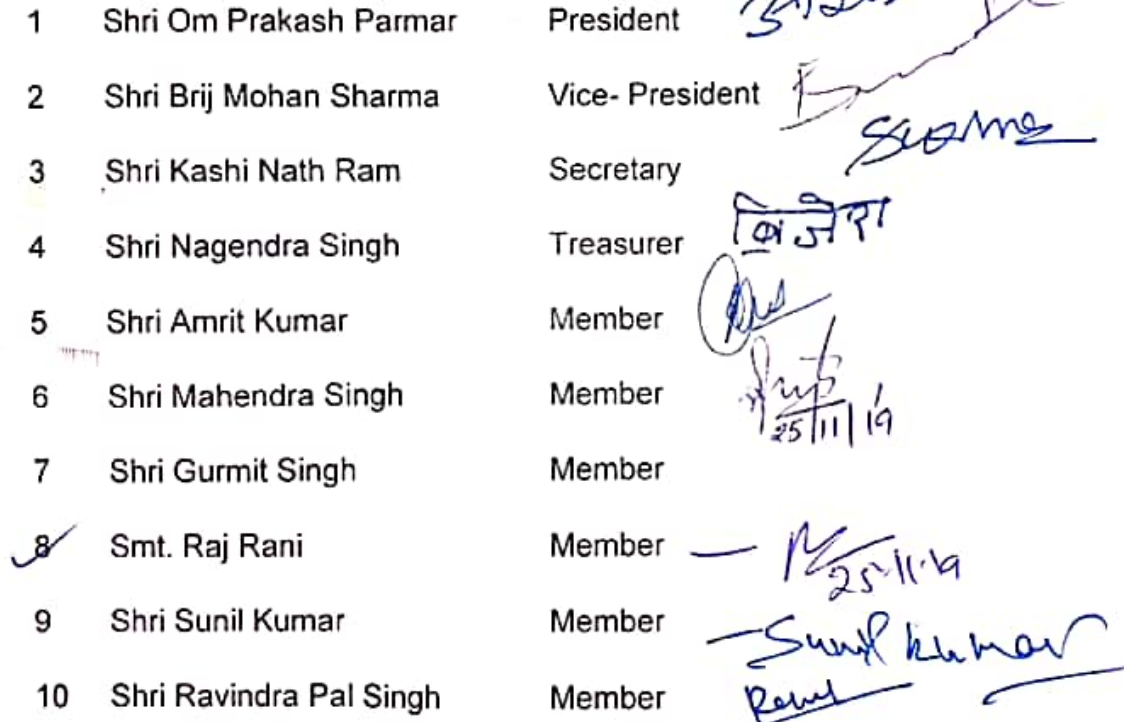 1 Shri Om Prakash Parmar President
2 Shri Brij Mohan Sharma Vice- President
3 Shri Kashi Nath Ram Secretary
4 Shri Nagendra Singh Treasurer
5 Shri Amrit Kumar Member
6 Shri Mahendra Singh Member
25/11/19
7 Shri Gurmit Singh Member
8 Smt. Raj Rani Member
25-11-19
9 Shri Sunil Kumar Member Sunil kumar
10 Shri Ravindra Pal Singh Member